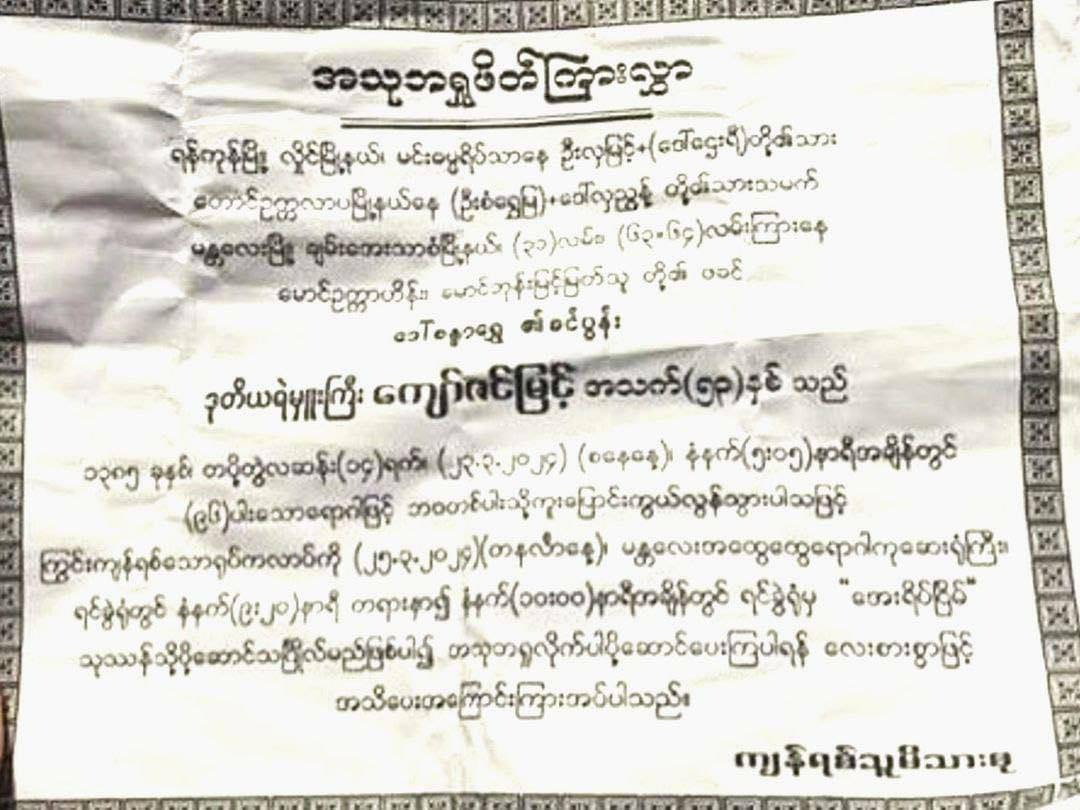 အသုဘရှုဖိတ်ကြားလွှာ
ရန်ကုန်မြို့ လှိုင်မြို့နယ်၊ မင်းဓမ္မရိပ်သာနေ ဦးလှမြင့်+(ဒေါ်ဌေးရီ)တို့၏သား
တောင်ဥက္ကလာပမြို့နယ်နေ (ဦးစံရွှေမြ)+ဒေါ်လှညွန့် တို့၏သားသမက်
မန္တလေးမြို့ ချမ်းအေးသာစံမြို့နယ်၊ (၃၁)လမ်း၊ (၆၃+၆၄)လမ်းကြားနေ
မောင်ဥက္ကာဟိန်း၊ မောင်ဘုန်းမြင့်မြတ်သူ တို့၏ ဖခင်
ဒေါ်စန္ဒာရွှေ ၏ခင်ပွန်း
ဒုတိယရဲမှူးကြီး ကျော်ဇင်မြင့် အသက်(၅၃)နှစ် သည်
၁၃၈၅ ခုနှစ်၊ တပို့တွဲလဆန်း(၁၄)ရက်၊ (၂၃.၃.၂၀၂၄) (စနေနေ့)၊ နံနက်(၅း၀၅)နာရီအချိန်တွင်
(၉၆)ပါးသောရောဂါဖြင့် ဘဝတစ်ပါးသို့ကူးပြောင်းကွယ်လွန်သွားပါသဖြင့်
ကြွင်းကျန်ရစ်သောရုပ်ကလာပ်ကို (၂၅.၃.၂၀၂၄)(တနင်္လာနေ့)၊ မန္တလေးအထွေထွေရောဂါကုဆေးရုံကြီး၊
ရင်ခွဲရုံတွင် နံနက်(၉း၂၀)နာရီ တရားနာ၍ နံနက်(၁၀း၀၀)နာရီအချိန်တွင် ရင်ခွဲရုံမှ “အေးရိပ်ငြိမ်”
သုဿန်သို့ပို့ဆောင်သင်္ဂြိုလ်မည်ဖြစ်ပါ၍ အသုဘရှုလိုက်ပါပို့ဆောင်ပေးကြပါရန် လေးစားစွာဖြင့်
အသိပေးအကြောင်းကြားအပ်ပါသည်။
ကျန်ရစ်သူမိသားစု